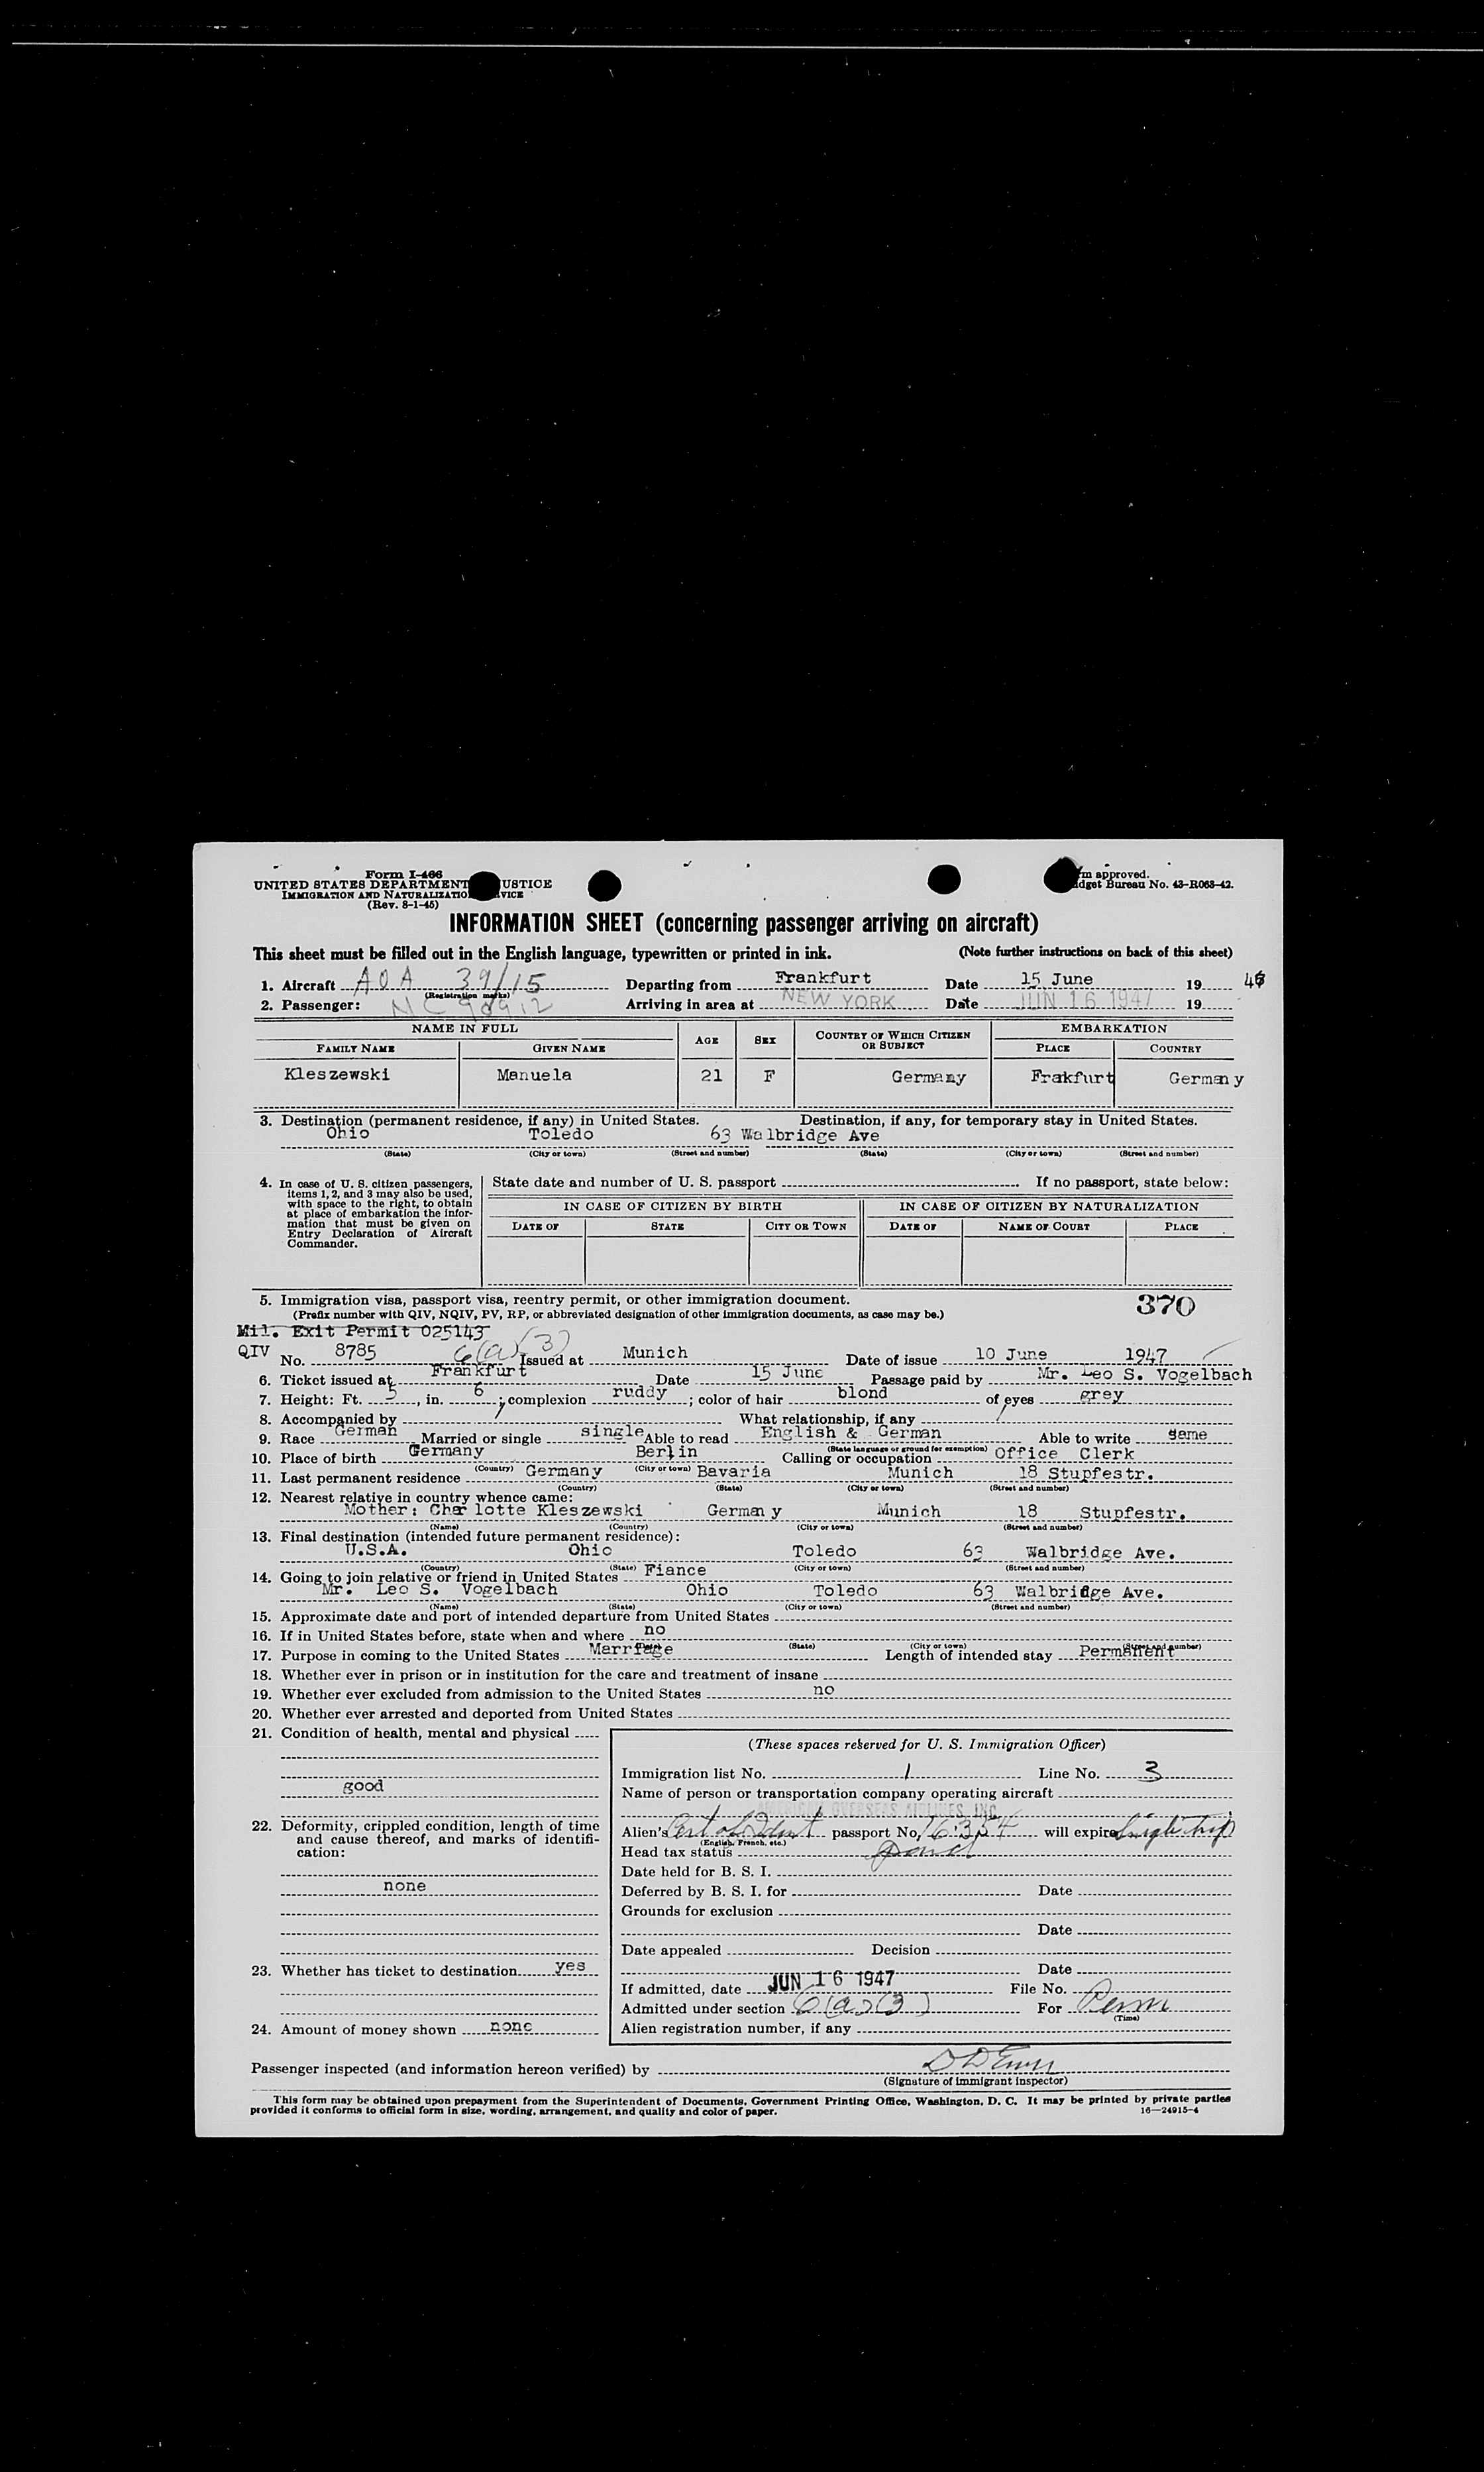 Form I-466
UNITED STATES DEPARTMENT USTICE
IMMIGRATION AND NATURALIZATIO VICE
(Rev. 8-1-45)
m approved.
dget Bureau No. 43-R063-42.
INFORMATION SHEET (concerning passenger arriving on aircraft)
This sheet must be filled out in the English language, typewritten or printed in ink. (Note further instructions on back of this sheet)
1. Aircraft AOA 39/15 Departing from Frankfurt Date 15 June 19
(Registration marks)
2. Passenger: Arriving in area at NEW YORK Date JUN 16 1947 19
NAME IN FULL AGE SEX COUNTRY OF WHICH CITIZEN OR SUBJECT EMBARKATION
FAMILY NAME GIVEN NAME PLACE COUNTRY
Kleszewski Manuela 21 F Germany Frakfurt Germany
3. Destination (permanent residence, if any) in United States. Destination, if any, for temporary stay in United States.
Ohio Toledo 63 Walbridge Ave
(State) (City or town) (Street and number) (State) (City or town) (Street and number)
4. In case of U. S. citizen passengers, items 1, 2, and 3 may also be used, with space to the right, to obtain at place of embarkation the information that must be given on Entry Declaration of Aircraft Commander.
State date and number of U. S. passport If no passport, state below:
IN CASE OF CITIZEN BY BIRTH IN CASE OF CITIZEN BY NATURALIZATION
DATE OF STATE CITY OR TOWN DATE OF NAME OF COURT PLACE
5. Immigration visa, passport visa, reentry permit, or other immigration document. 370
(Prefix number with QIV, NQIV, PV, RP, or abbreviated designation of other immigration documents, as case may be.)
Mil. Exit Permit 025143
QIV No. 8785 6(a)(3) Issued at Munich Date of issue 10 June 1947
6. Ticket issued at Frankfurt Date 15 June Passage paid by Mr. Leo S. Vogelbach
7. Height: Ft. 5, in. 6; complexion ruddy; color of hair blond of eyes grey
8. Accompanied by / What relationship, if any /
9. Race German Married or single single Able to read English & German Able to write same
(State language or ground for exemption)
10. Place of birth Germany Berlin Calling or occupation Office Clerk
(Country) (City or town)
11. Last permanent residence Germany Bavaria Munich 18 Stupfestr.
(Country) (State) (City or town) (Street and number)
12. Nearest relative in country whence came:
Mother: Charlotte Kleszewski Germany Munich 18 Stupfestr.
(Name) (Country) (City or town) (Street and number)
13. Final destination (intended future permanent residence):
U.S.A. Ohio Toledo 63 Walbridge Ave.
(Country) (State) (City or town) (Street and number)
14. Going to join relative or friend in United States Fiance
Mr. Leo S. Vogelbach Ohio Toledo 63 Walbridge Ave.
(Name) (State) (City or town) (Street and number)
15. Approximate date and port of intended departure from United States
16. If in United States before, state when and where no
(State) (City or town) (Street and number)
17. Purpose in coming to the United States Marriage Length of intended stay Permanent
18. Whether ever in prison or in institution for the care and treatment of insane
19. Whether ever excluded from admission to the United States no
20. Whether ever arrested and deported from United States
21. Condition of health, mental and physical
good
22. Deformity, crippled condition, length of time and cause thereof, and marks of identification:
none
23. Whether has ticket to destination yes
24. Amount of money shown none
(These spaces reserved for U. S. Immigration Officer)
Immigration list No. 1 Line No. 3
Name of person or transportation company operating aircraft
AMERICAN OVERSEAS AIRLINES, INC
Alien's Cert of Ident passport No. 16354 will expire Single trip
(English, French, etc.)
Head tax status
Date held for B. S. I.
Deferred by B. S. I. for Date
Grounds for exclusion
Date
Date appealed Decision
Date
If admitted, date JUN 16 1947 File No.
Admitted under section 6(a)(3) For Perm
(Time)
Alien registration number, if any
Passenger inspected (and information hereon verified) by
(Signature of immigrant inspector)
This form may be obtained upon prepayment from the Superintendent of Documents, Government Printing Office, Washington, D. C. It may be printed by private parties
provided it conforms to official form in size, wording, arrangement, and quality and color of paper. 16—24915-4